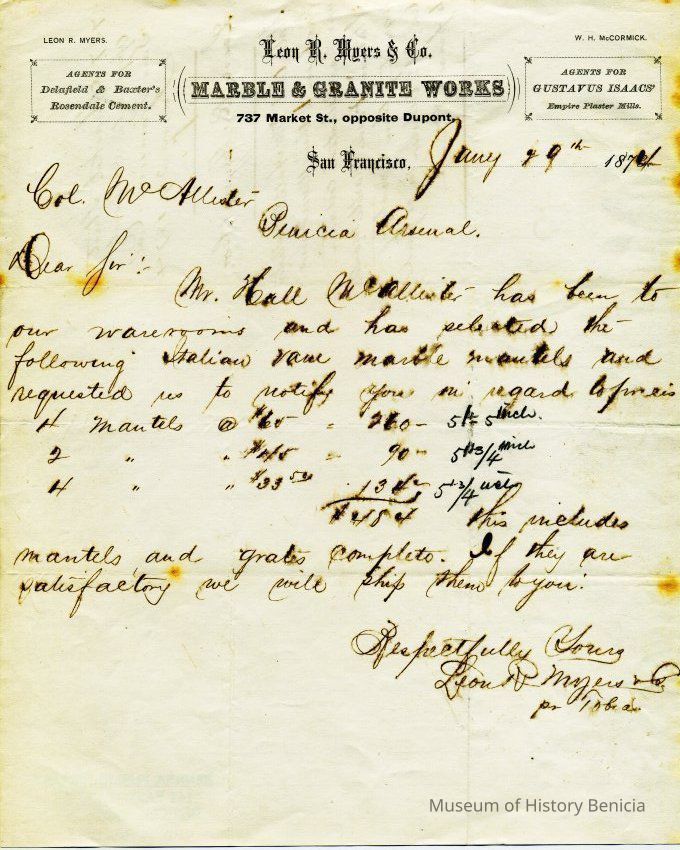 LEON R. MYERS.
W. H. McCORMICK.
Leon R. Myers & Co.
AGENTS FOR
Delafield & Baxter's
Rosendale Cement.
MARBLE & GRANITE WORKS
AGENTS FOR
GUSTAVUS ISAACS'
Empire Plaster Mills.
737 Market St., opposite Dupont.
San Francisco, Jany 29th 1874
Col. McAllister
Benicia Arsenal.
Dear Sir:-
Mr. Hall McAllister has been to
our warerooms and has selected the
following Italian vane marble mantels and
requested us to notify you in regard to
4 mantels @ $65 = 260- 5ft 5 inch.
2 " " $45 - 90- 5ft 3/4 inch
4 " " $33 50 134- 5ft 3/4 inch
$484 this includes
mantels and grates complete. If they are
satisfactory we will ship them to you.
Respectfully Yours
Leon R Myers & Co
pr
Museum of History Benicia